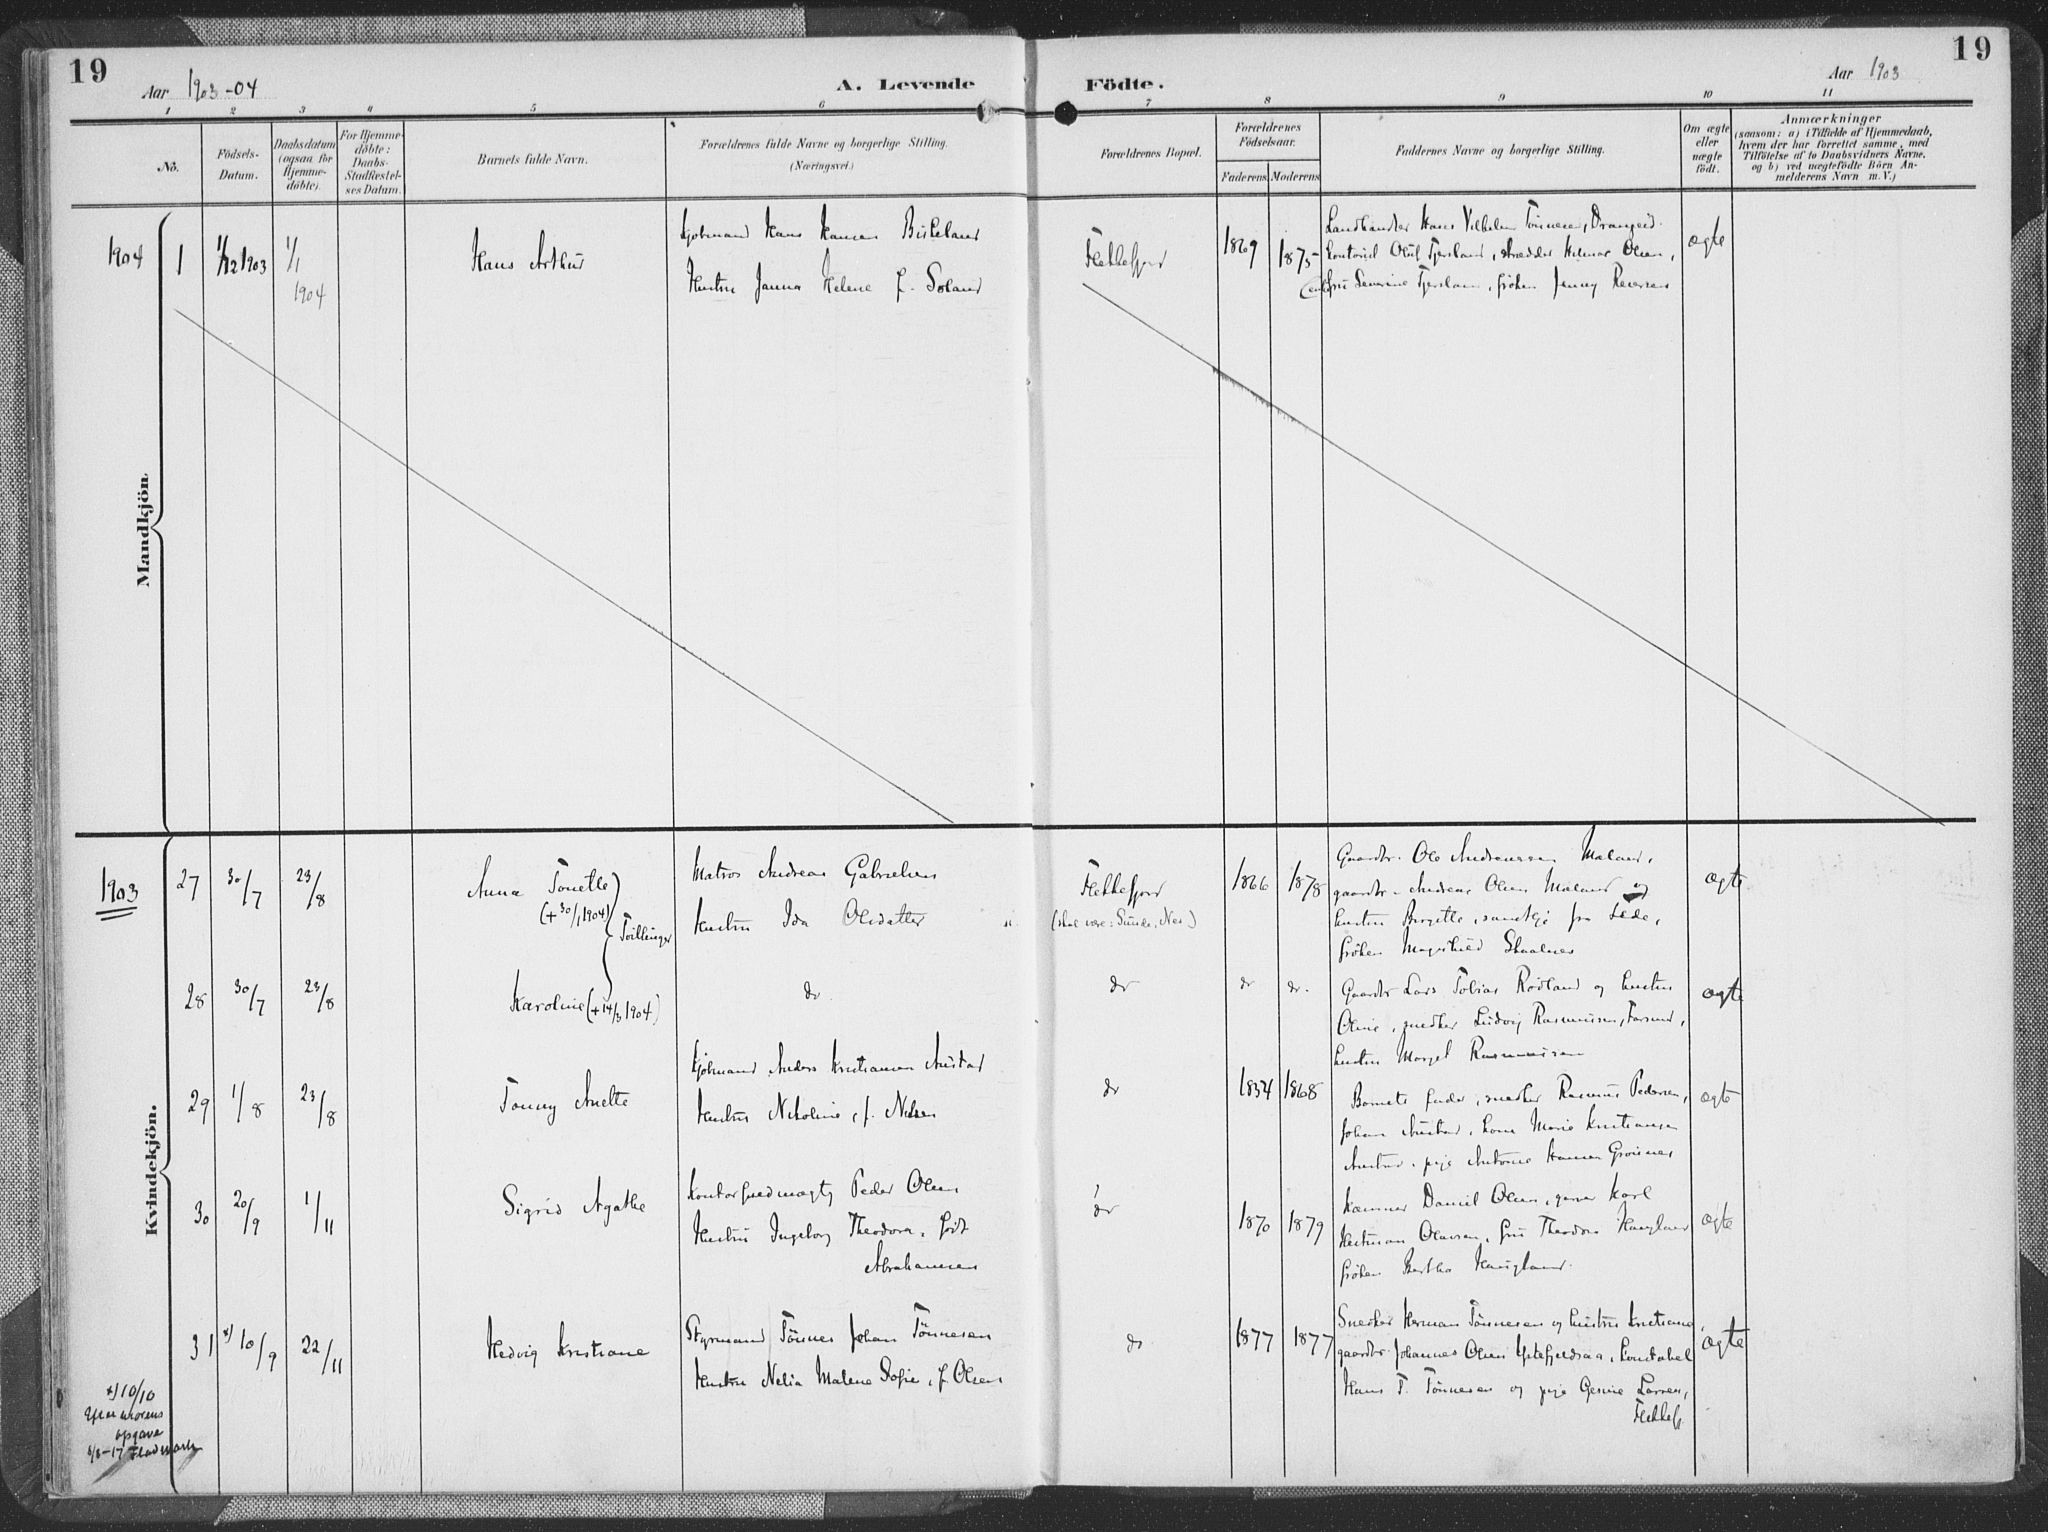 19
Aar 1903-04
A. Levende
Födte.
Aar 1903
19
1 2 3 4 5 6 7 8 9 10 11
No.
Födsels-
Datum.
Daabsdatum
(ogsaa for
Hjemme-
döbte).
For Hjemme-
döbte:
Daabs-
Stadfæstel-
ses Datum.
Barnets fulde Navn.
Forældrenes fulde Navne og borgerlige Stilling.
(Næringsvei.)
Forældrenes Bopæl.
Forældrenes
Födselsaar.
Faderens Moderens
Faddernes Navne og borgerlige Stilling.
Om ægte
eller
uægte
födt.
Anmærkninger
(saasom: a) i Tilfælde af Hjemmedaab,
hvem der har forrettet samme, med
Tilföielse af to Daabsvidners Navne,
og b) ved uægtefödte Börn An-
melderens Navn m. V.)
Mandkjön.
1904 1 1/12 1903 1/1
1904
Hans Arthur
Kjøbmand Hans Hansen Birkeland
Hustru Janna Helene f. Soland
Flekkefjord
1869 1875
Landhandler Hans Vilhelm Tønnesen, Drangeid.
Kontorist Oluf Tjersland, skrædder Hilmar Olsen,
fru Severine Tjersland, frøken Jenny Reiersen
ægte
Kvindekjön.
1903 27 30/7 23/8
Anna Tonette
(+ 30/1 1904)
Tvillinger
Matros Andreas Gabrielsen
Hustru Ida Olsdatter
Flekkefjord
(skal være: Sunde, Nes)
1866 1878
Gaardbr. Ole Andreassen Maland,
gaardbr. Andreas Olsen Maland og
hustru Birgitte, samt
frøken
ægte
28 30/7 23/8
Karoline (+ 14/3 1904)
do.
do
do do.
Gaardbr Lars Tobias Rødland og hustru
Oline, snedker Ludvig Rasmussen, Farsund,
hustru Marget Rasmussen
ægte
29 1/8 23/8
Tonny Anette
Kjøbmand Anders Kristiansen Austad
Hustru Nikoline, f. Nilsen
do
1854 1868
Barnets fader, snedker Rasmus Pedersen,
Johan Austad, kone Marie Kristiansen
Austad, pige Antonie Hansen
ægte
30 20/9 1/11
Sigrid Agathe
Kontorfuldmægtig Peder Olsen
Hustru Ingeborg Theodora, født
Abrahamsen
do
1870 1879
Kæmner Daniel Olsen, garver Karl
Hertman Olavsen, fru Theodora Haugland
frøken Bertha Haugland.
ægte
31 x) 10/9 22/11
Hedvig Kristiane
Styrmand Tönnes Johan Tönnesen
Hustru Nelia Malene Sofie, f. Olsen
do
1877 1877
Snedker Herman Tönnesen og hustru Kristiane,
gaardbr. Johannes Olsen, Konstabel
Hans T. Tönnesen og pige Gesine Larsen,
Flekkefj.
ægte
x) 10/10
Efter morens
opgave
8/8-17 Flodmark